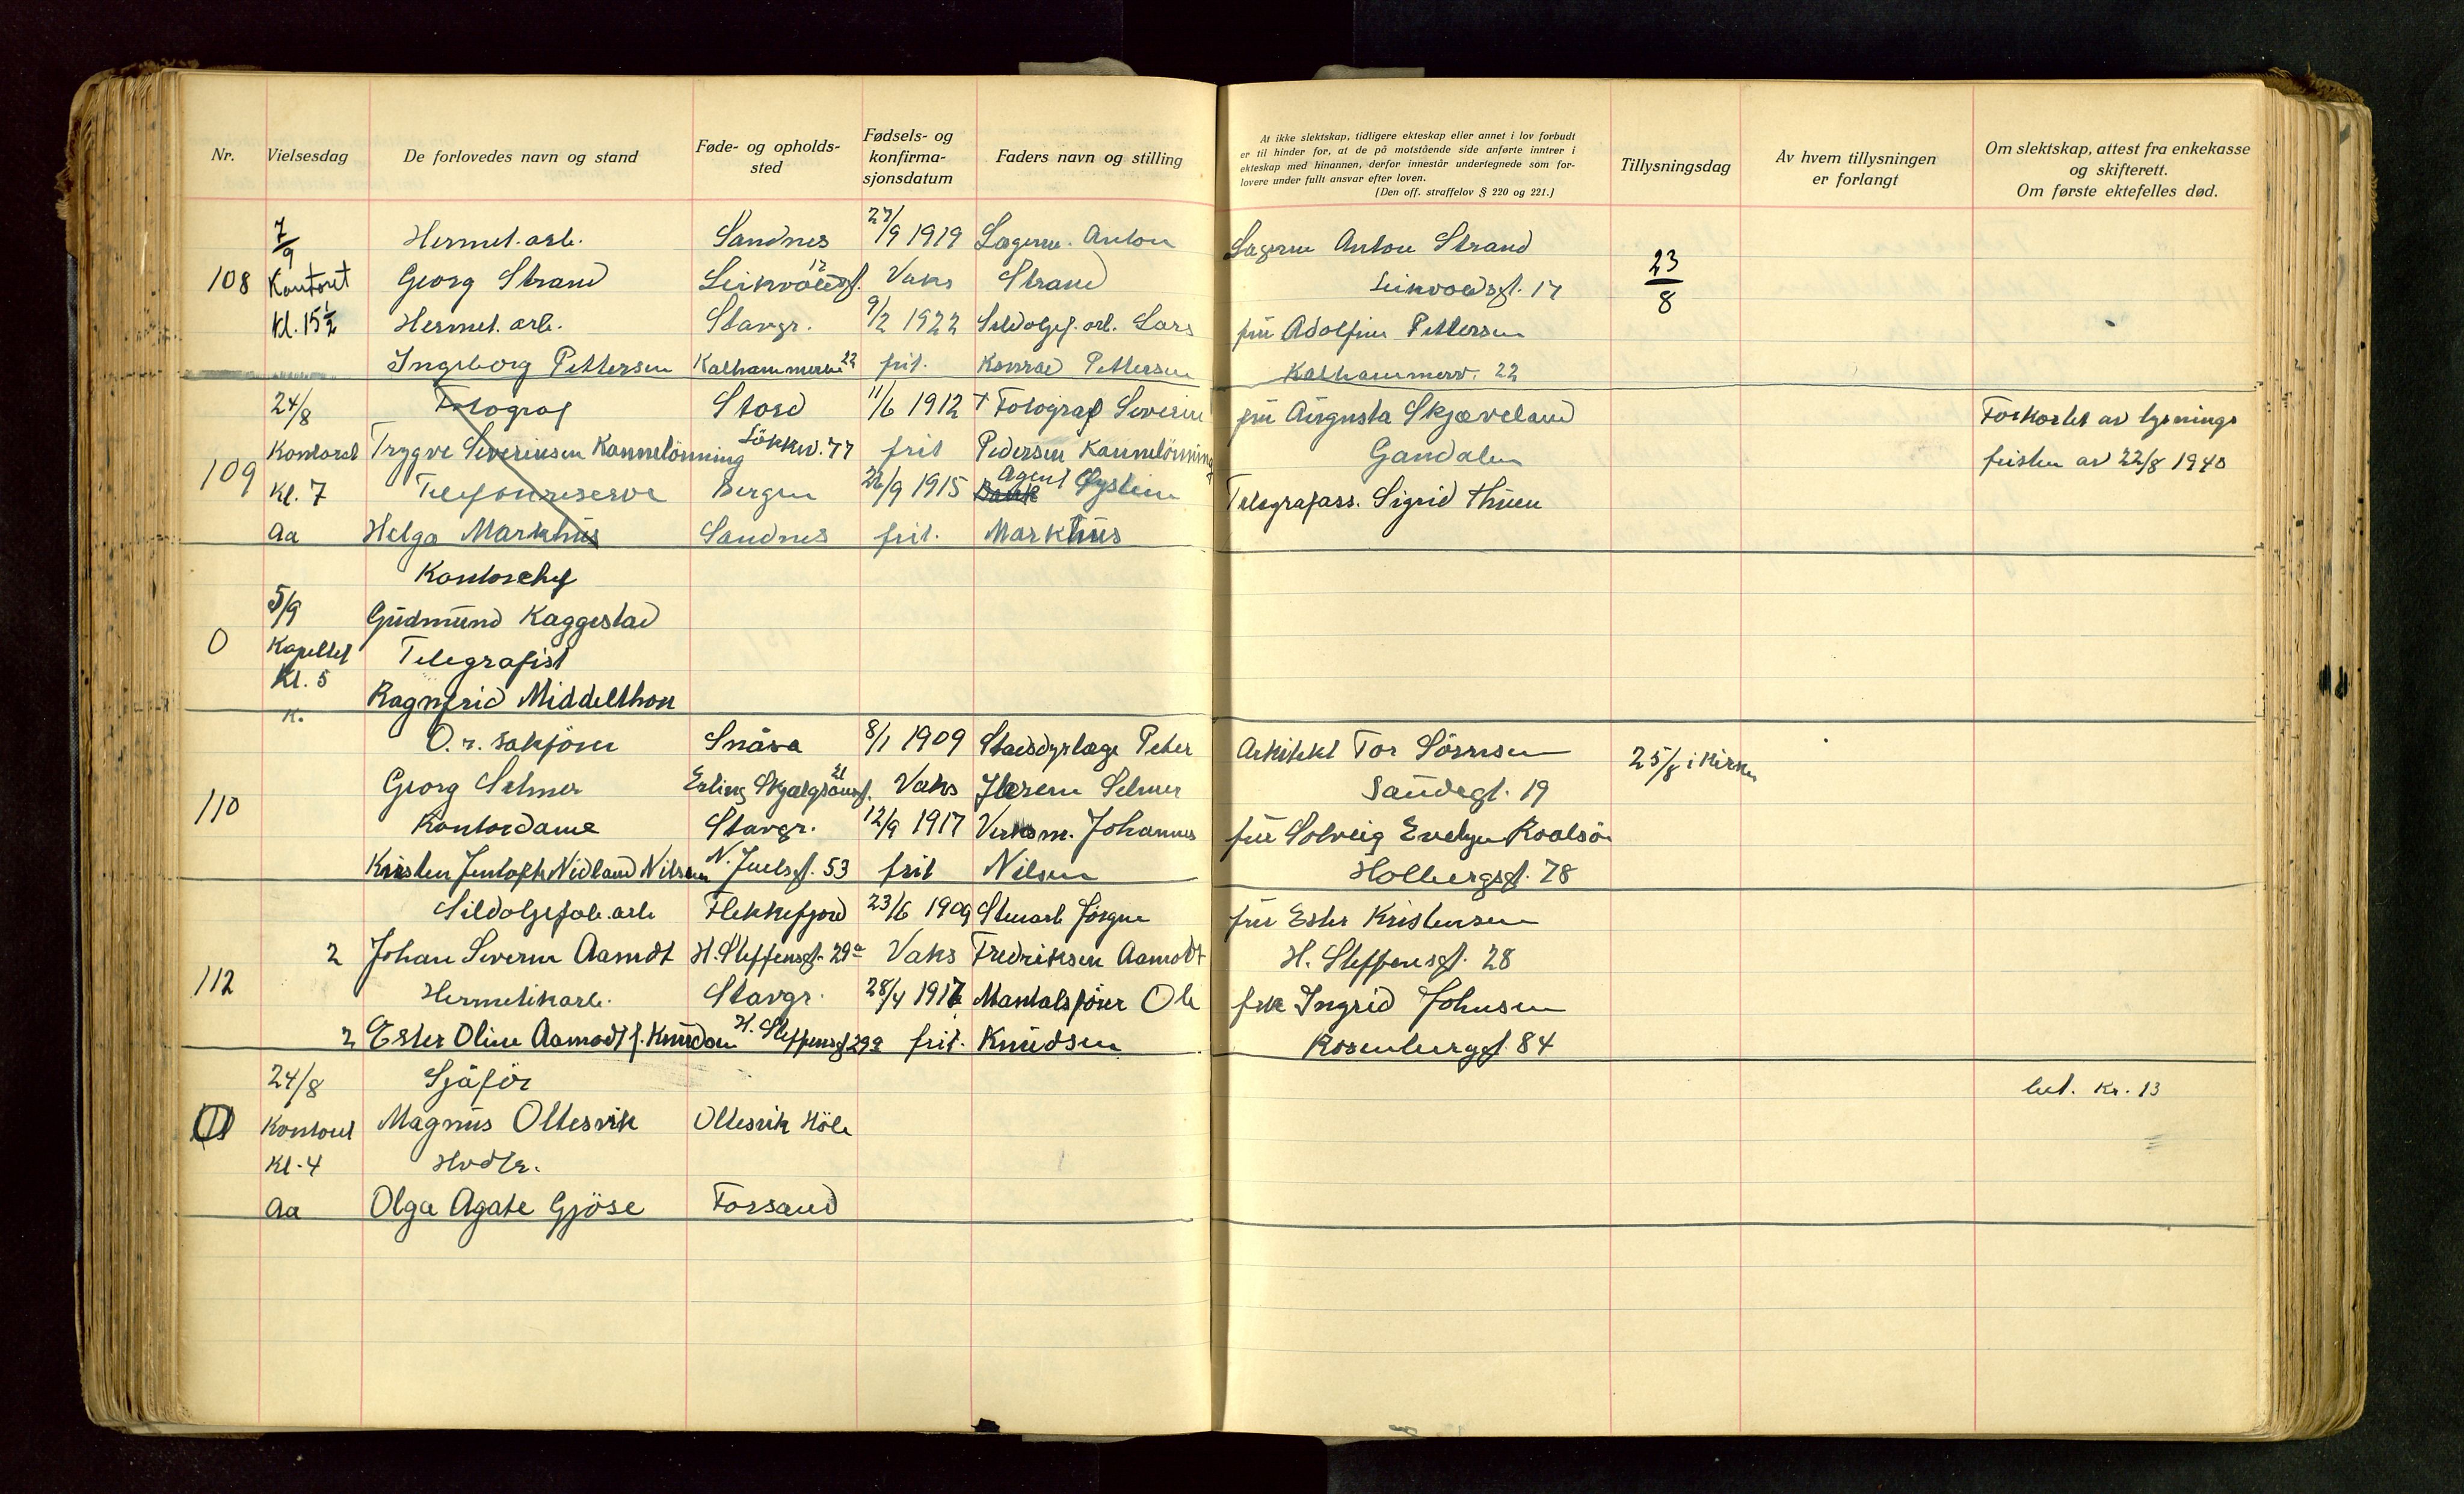 Nr.
Vielsesdag
De forlovedes navn og stand
Føde- og opholds-
sted
Fødsels- og
konfirma-
sjonsdatum
Faders navn og stilling
At ikke slektskap, tidligere ekteskap eller annet i lov forbudt
er til hinder for, at de på motstående side anførte inntrer i
ekteskap med hinannen, derfor innestår undertegnede som for-
lovere under fullt ansvar efter loven.
[Den off. straffelov § 220 og 221.]
Tillysningsdag
Av hvem tillysningen
er forlangt
Om slektskap, attest fra enkekasse
og skifterett.
Om første ektefelles død.
7/9 Hermet. arb. Sandnes 27/9 1919 Lagerm. Anton Lagerm Anton Strand
108 Kontoret Georg Strand 12 Vaks Strand 17 23/8
Kl. 15½ Hermet. arb. Stavgr. 9/2 1922 Sildoljef. arb. Lars fru Adolfine Pettersen
Ingeborg Pettersen Kalhammerv 22 frit. Konrad Pettersen Kalhammerv. 22
24/8 Fotograf Stord 11/6 1912 † Fotograf Severin fru Augusta Skjæveland Forkortet av lysnings
109 Kontoret Trygve Severinsen Kannelönning Lökkev. 77 frit Pedersen Kannelönning Gandalen fristen av 22/8 1940
Kl. 7 Telefonreserve Bergen 26/9 1915 Agent Øystein Telegrafass. Sigrid Thuen
Aa Helga Markhus Sandnes frit. Markhus
Kontorchef
5/9 Gudmund Kaggestad
0 Kapellet Telegrafist
Kl. 5 Ragnfrid Middelthon
K.
O. r. sakförer Snåsa 8/1 1909 Stadsdyrlæge Peter Arkitekt Tor Sörensen 25/8 i Kirken
110 Georg Selmer Erling Skjalgsonsg. 21 Vaks Selmer Sandegt. 19
Kontordame Stavgr. 12/9 1917 Verksm. Johannes fru Solveig Evelyn Roalsö
Kirsten Jentoft Nidland Nilsen N. Juelsg. 53 frit Nilsen Holbergsg. 78
Sildoljefab. arb Flekkefjord 23/6 1909 Stuart Jörgen fru Ester Kristensen
112 2 Johan Severin Aamodt H. Steffensg. 29a Vaks Fredriksen Aamodt H. Steffensg. 28
Hermetikarb. Stavgr. 28/4 1917 Mantalsförer Ole frk Ingrid Johnsen
2 Ester Oline Aamodt f. Knudsen H. Steffensg 29a frit. Knudsen Rosenbergg. 84
24/8 Sjåför bet. Kr. 13
0 Kontoret Magnus Oltesvik Oltesvik Höle
Kl. 4
Aa Olga Agate Gjöse Forsand